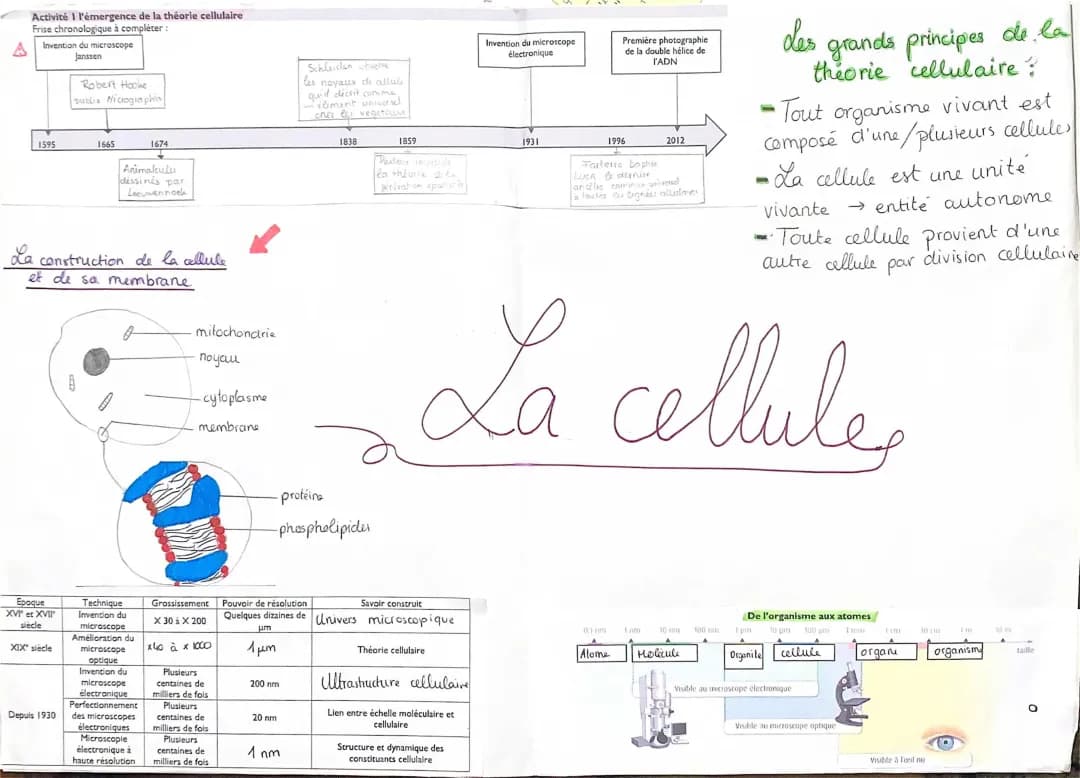 Activité 1 l'émergence de la théorie cellulaire
Frise chronologique à compléter :
Invention du microscope
Janssen
Robert Hooke
publie Micrographia
Schleiden observe
les noyaux de
qu'il décrit comme
élément universel
chez les végétaux
Invention du microscope
électronique
Première photographie
de la double hélice de
l'ADN
1595
1665
1674
1838
1859
1931
1996
2012
Animalcules
dessinés par
Leeuwenhoek
Pasteur
la théorie de la
Luca le dernier
ancêtre commun
à toutes les lignées cellulaires
Les grands principes de la
théorie cellulaire :
- Tout organisme vivant est
composé d'une/plusieurs cellules
- La cellule est une unité
vivante → entité autonome
- Toute cellule provient d'une
autre cellule par division cellulaire
La construction de la cellule
et de sa membrane
mitochondrie
noyau
cytoplasme
membrane
protéine
phospholipides
La cellule
Epoque Technique Grossissement Pouvoir de résolution Savoir construit
XVIe et XVIIe siècle Invention du microscope X 30 à X 200 Quelques dizaines de µm Univers microscopique
XIXe siècle Amélioration du microscope optique x40 à x 1000 1 µm Théorie cellulaire
Depuis 1930 Invention du microscope électronique Plusieurs centaines de milliers de fois 200 nm Ultrastructure cellulaire
Perfectionnement des microscopes électroniques Plusieurs centaines de milliers de fois 20 nm Lien entre échelle moléculaire et cellulaire
Microscopie électronique à haute résolution Plusieurs centaines de milliers de fois 1 nm Structure et dynamique des constituants cellulaire
De l'organisme aux atomes
0,1 nm 1 nm 10 nm 100 nm 1 µm 10 µm 100 µm 1 mm 1 cm 10 cm 1 m 10 m
taille
Atome Molécule Organite cellule organe organisme
Visible au microscope électronique
Visible au microscope optique
Visible à l'œil nu